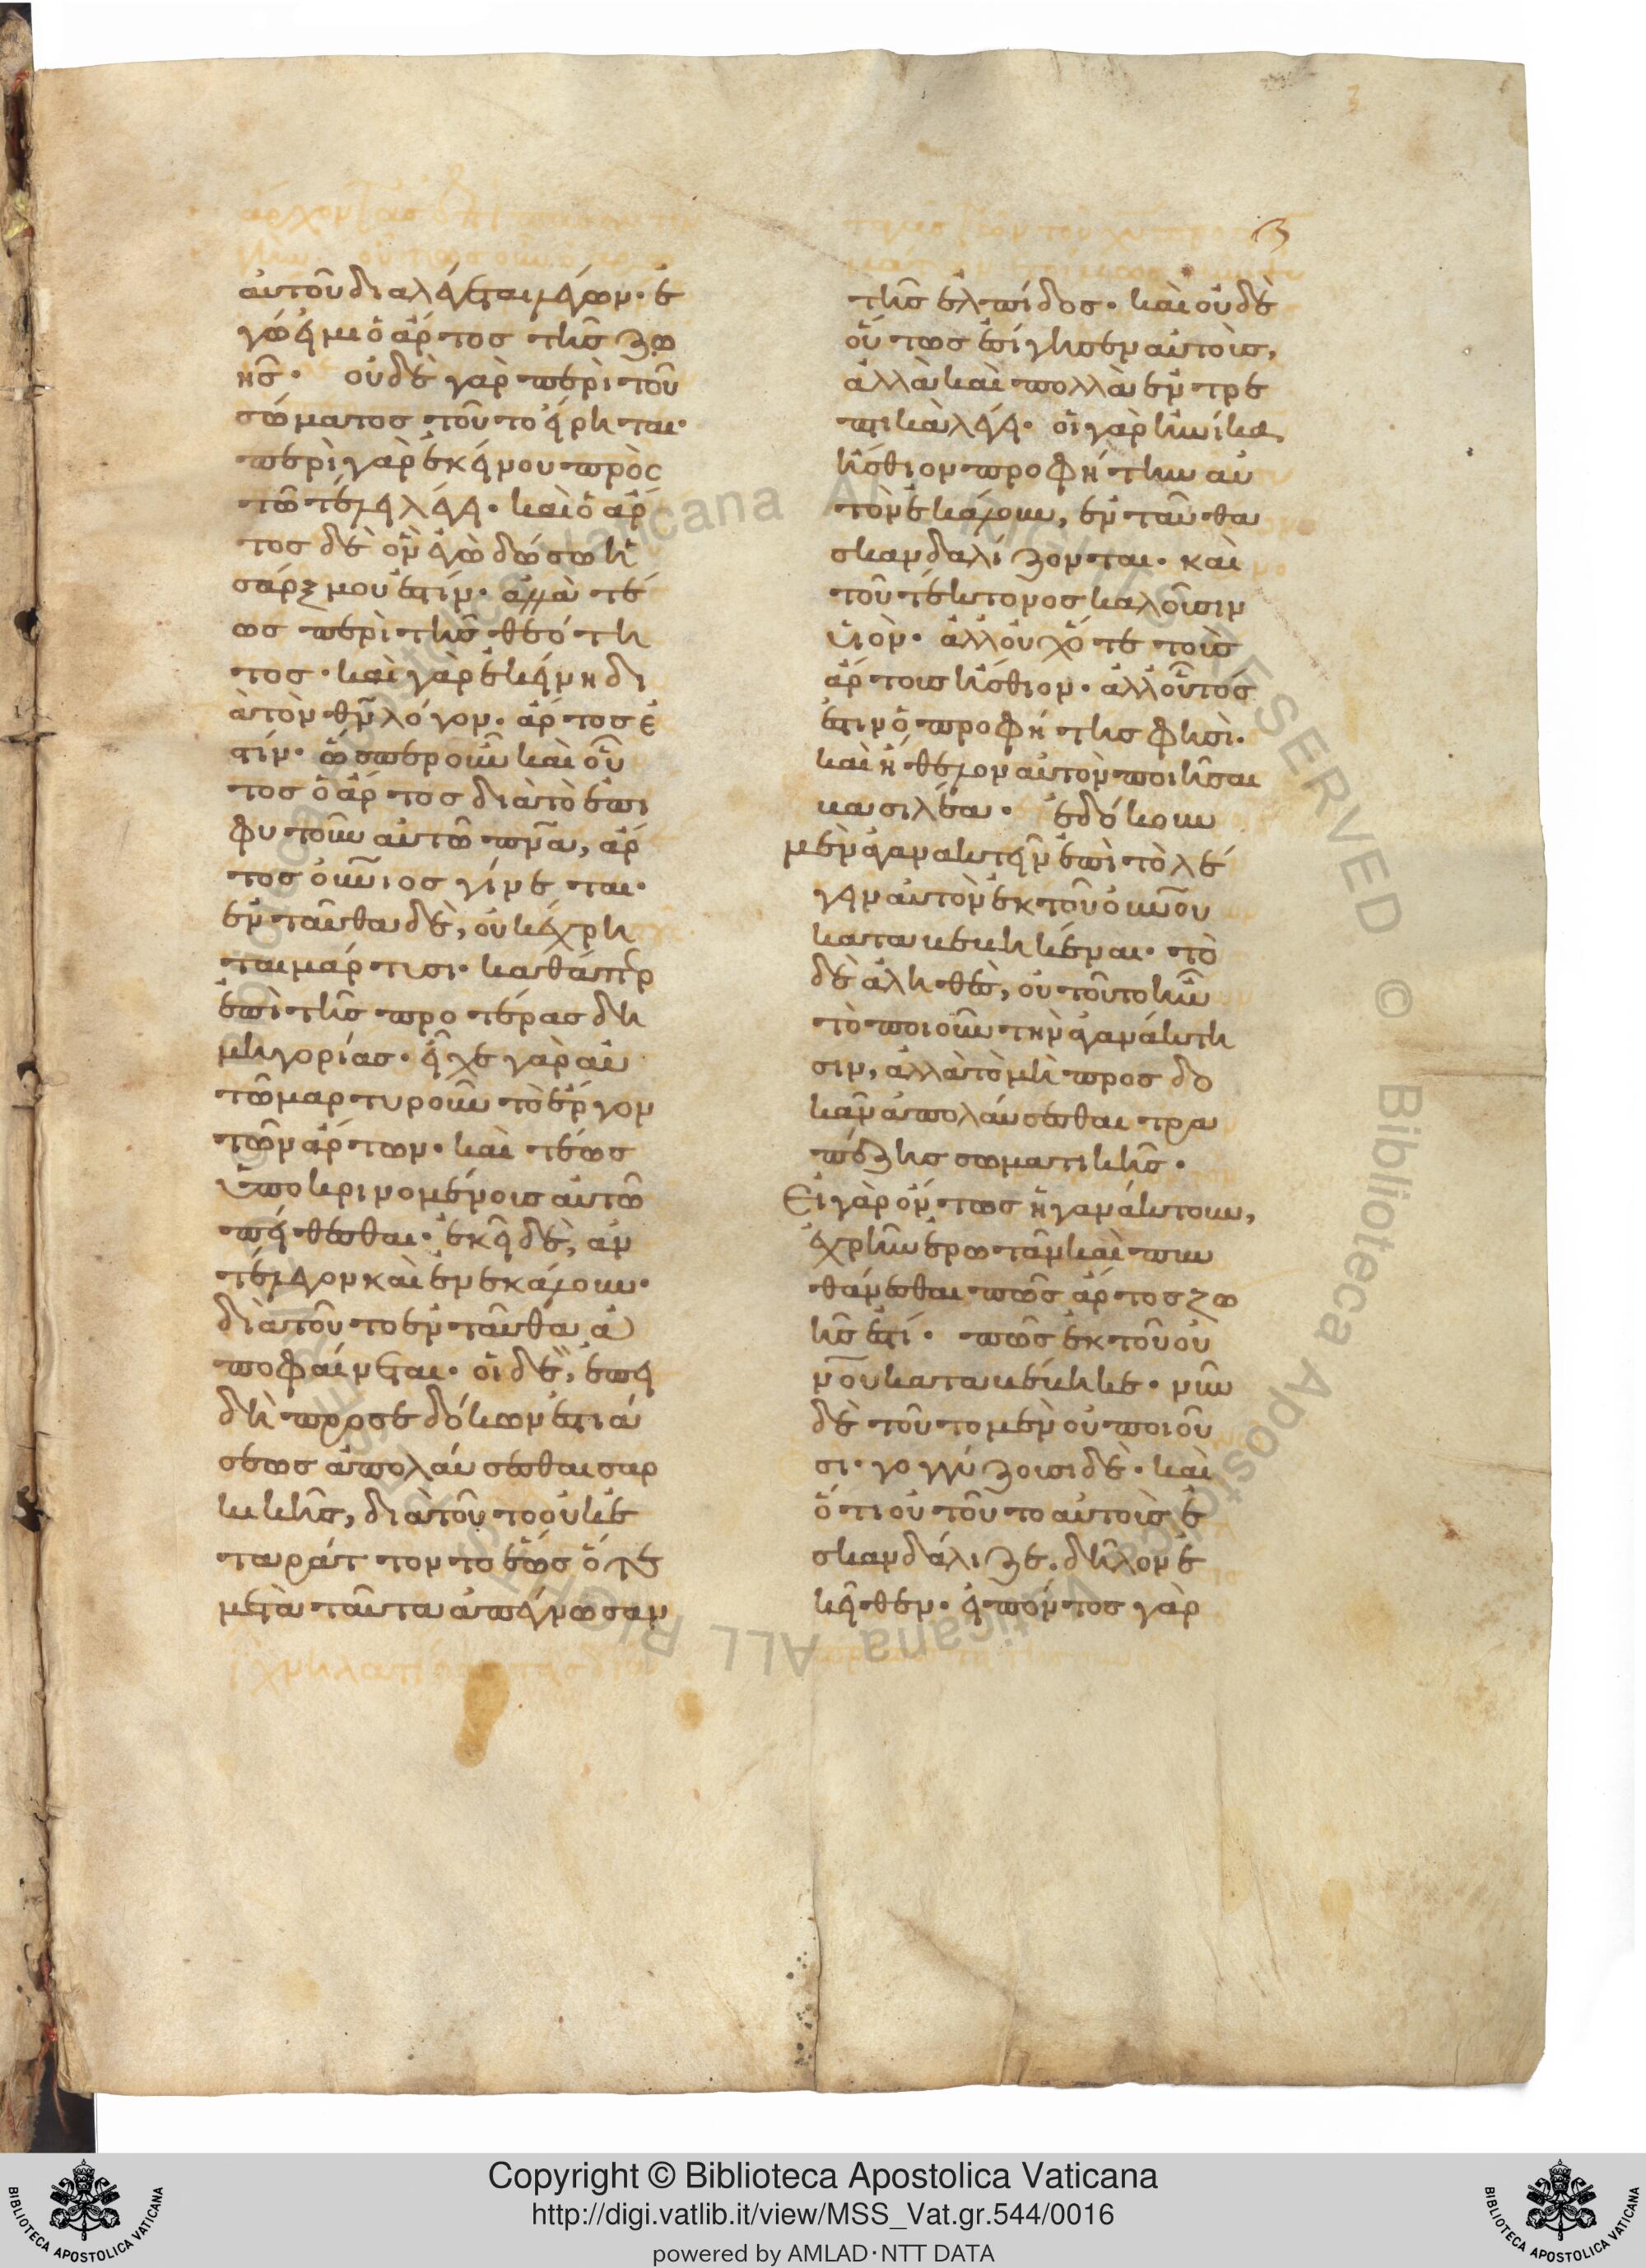 αὐτοῦ διαλέγεται λέγων· ἐ
γώ εἰμι ὁ ἄρτος τῆς ζω
ῆς· οὐδὲ γὰρ περὶ τοῦ
σώματος τοῦτο εἴρηται·
περὶ γὰρ ἐκείνου πρὸς
τῶ τέλει λέγει· καὶ ὁ ἄρ
τος δὲ ὃν ἐγὼ δώσω ἡ
σάρξ μου ἐστίν· ἀλλὰ τέ
ως περὶ τῆς θεότη
τος· καὶ γὰρ ἐκείνη δι
ὰ τὸν θν̅ λόγον· ἄρτος ἐ
στίν· ὥσπερ οὖν καὶ οὗ
τος ὁ ἄρτος διὰ τὸ ἐπι
φυτοῦν αὐτῶ πνα̅, ἄρ
τος οὐν̅ιος γίνεται·
ἐνταῦθα δὲ, οὐ κέχρη
ται μάρτυσι· καθάπερ
ἐπὶ τῆς προτέρας δη
μηγορίας· εἶχε γὰρ αὐ
τῶ μαρτυροῦν τὸ ἔργον
τῶν ἄρτων· καὶ τέως
ὑποκρινομένοις αὐτῶ
πείθεσθαι· ἐκεῖ δὲ, ἀν
τέλεγον καὶ ἐνεκάλουν·
διὰ τοῦτο ἐνταῦθα ἀ
ποφαίνεται· οἱ δὲ, ἐπει
δὴ προσεδόκων ἑστιά
σεως ἀπολαύσεσθαι σαρ
κικῆς, διὰ τοῦτο οὐκ ἐ
ταράττοντο ἕως ὅτε
μετὰ ταῦτα ἀπέγνωσαν
τῆς ἐλπίδος· καὶ οὐδὲ
οὕτως ἐσίγησεν αὐτοῖς,
ἀλλὰ καὶ πολλὰ ἐντρε
πτικὰ λέγει· οἱ γὰρ ἡνίκα
ἤσθιον προφήτην αὐ
τὸν ἐκάλουν, ἐνταῦθα
σκανδαλίζονται· καὶ
τοῦ τέκτονος καλοῦσιν
υἱόν· ἀλλ' οὐχ ὅτε τοὺς
ἄρτους ἤσθιον· ἀλλ' οὗτός
ἐστιν ὁ προφήτης φησὶ·
καὶ ἤθελον αὐτὸν ποιῆσαι
βασιλέα· ἐδόκουν
μὲν ἀγανακτεῖν ἐπὶ τὸ λέ
γειν αὐτὸν ἐκ τοῦ οὐν̅ου
καταβεβηκέναι· τὸ
δὲ ἀληθὲς, οὐ τοῦτο ἦν
τὸ ποιοῦν τὴν ἀγανάκτη
σιν, ἀλλὰ τὸ μὴ προσδο
κᾶν ἀπολαύσεσθαι τρα
πέζης σωματικῆς·
Εἰ γὰρ ὄντως ἠγανάκτουν,
ἐχρῆν ἐρωτᾶν καὶ πυν
θάνεσθαι πῶς ἄρτος ζω
ῆς ἐστί· πῶς ἐκ τοῦ οὐ
ν̅ου καταβέβηκε· νῦν
δὲ τοῦτο μὲν οὐ ποιοῦ
σι· γογγύζουσι δὲ· καὶ
ὅτι οὐ τοῦτο αὐτοὺς ἐ
σκανδάλιζε, δῆλον ἐ
κεῖθεν· εἰπόντος γὰρ
Copyright © Biblioteca Apostolica Vaticana
http://digi.vatlib.it/view/MSS_Vat.gr.544/0016
powered by AMLAD·NTT DATA